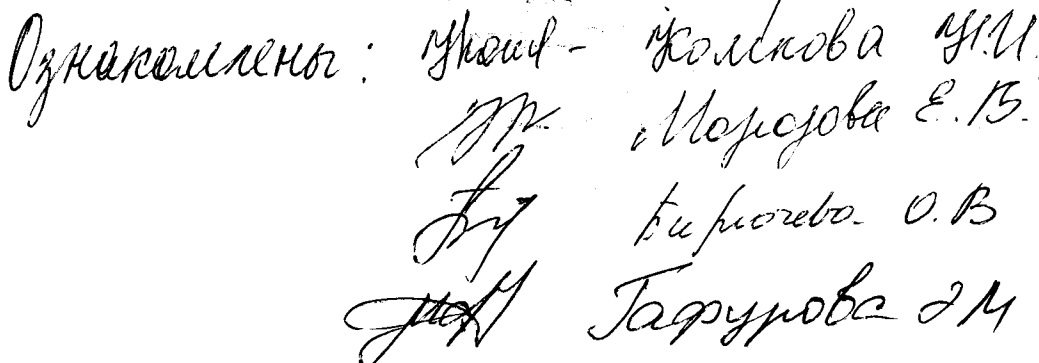 Ознакомлены: Колкова Н.И.
Морозова Е.В.
Бирючева О.В
Гафурова Э М